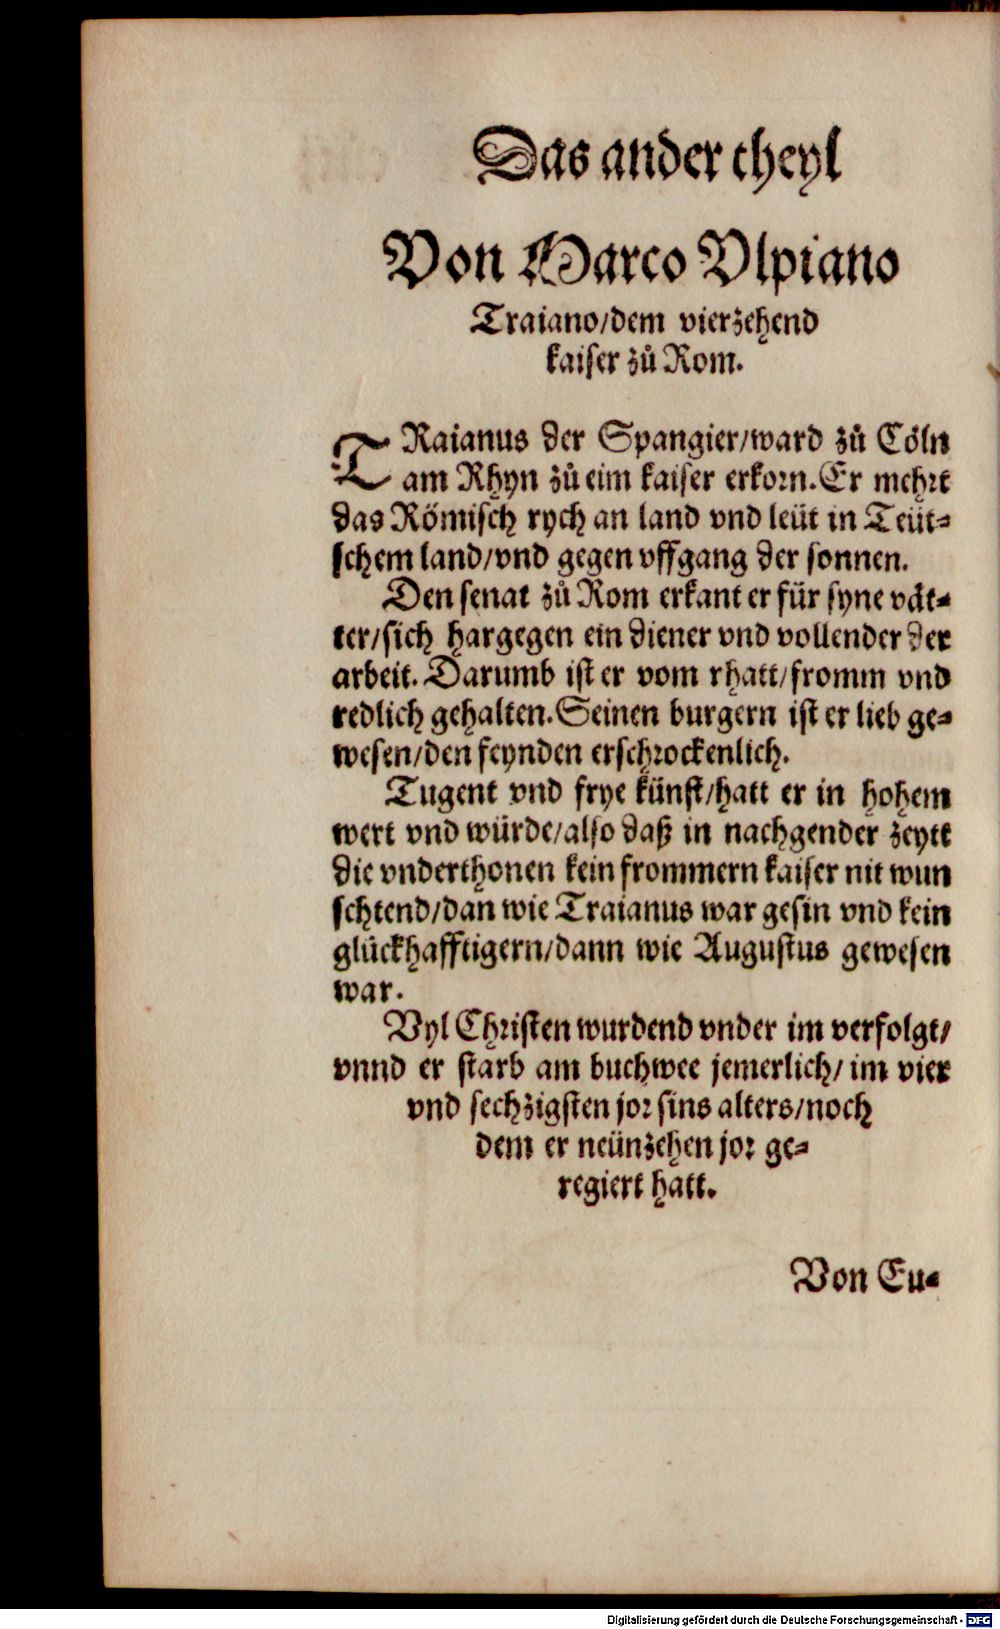 Das ander theyl
Von Marco Vlpiano
Traiano/dem vierzehend
kaiser zů Rom.
TRaianus der Spangier/ward zů Cöln
am Rhyn zů eim kaiser erkorn. Er mehrt
das Römisch rych an land vnd leüt in Teüt-
schem land/vnd gegen vffgang der sonnen.
Den senat zů Rom erkant er für syne våt-
ter/sich hargegen ein diener vnd vollender der
arbeit. Darumb ist er vom rhatt/fromm vnd
redlich gehalten. Seinen burgern ist er lieb ge-
wesen/den feynden erschrockenlich.
Tugent vnd frye künst/hatt er in hohem
wert vnd würde/also daß in nachgender zeytt
die vnderthonen kein frommern kaiser nit wun
schtend/dan wie Traianus war gesin vnd kein
glückhafftigern/dann wie Augustus gewesen
war.
Vyl Christen wurdend vnder im verfolgt/
vnnd er starb am buchwee jemerlich/ im vier
vnd sechzigsten jor sins alters/noch
dem er neünzehen jor ge-
regiert hatt.
Von Eu-
Digitalisierung gefördert durch die Deutsche Forschungsgemeinschaft - DFG